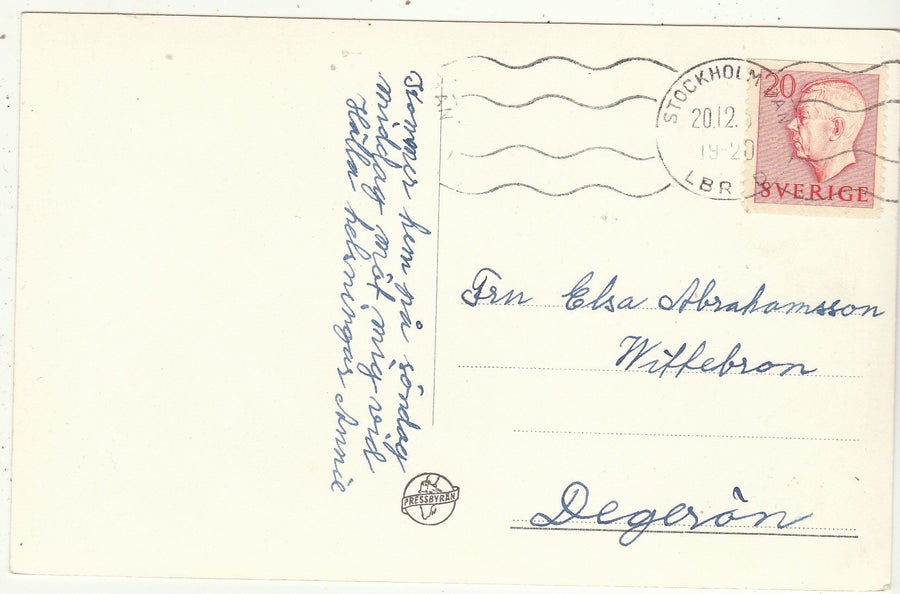 Kommer hem på söndag
middag möt mig vid
Hälla helsningar Annie
STOCKHOLM
20.12.
19-20
LBR
20
SVERIGE
Fru Elsa Abrahamsson
Wittebron
Degerön
PRESSBYRÅN